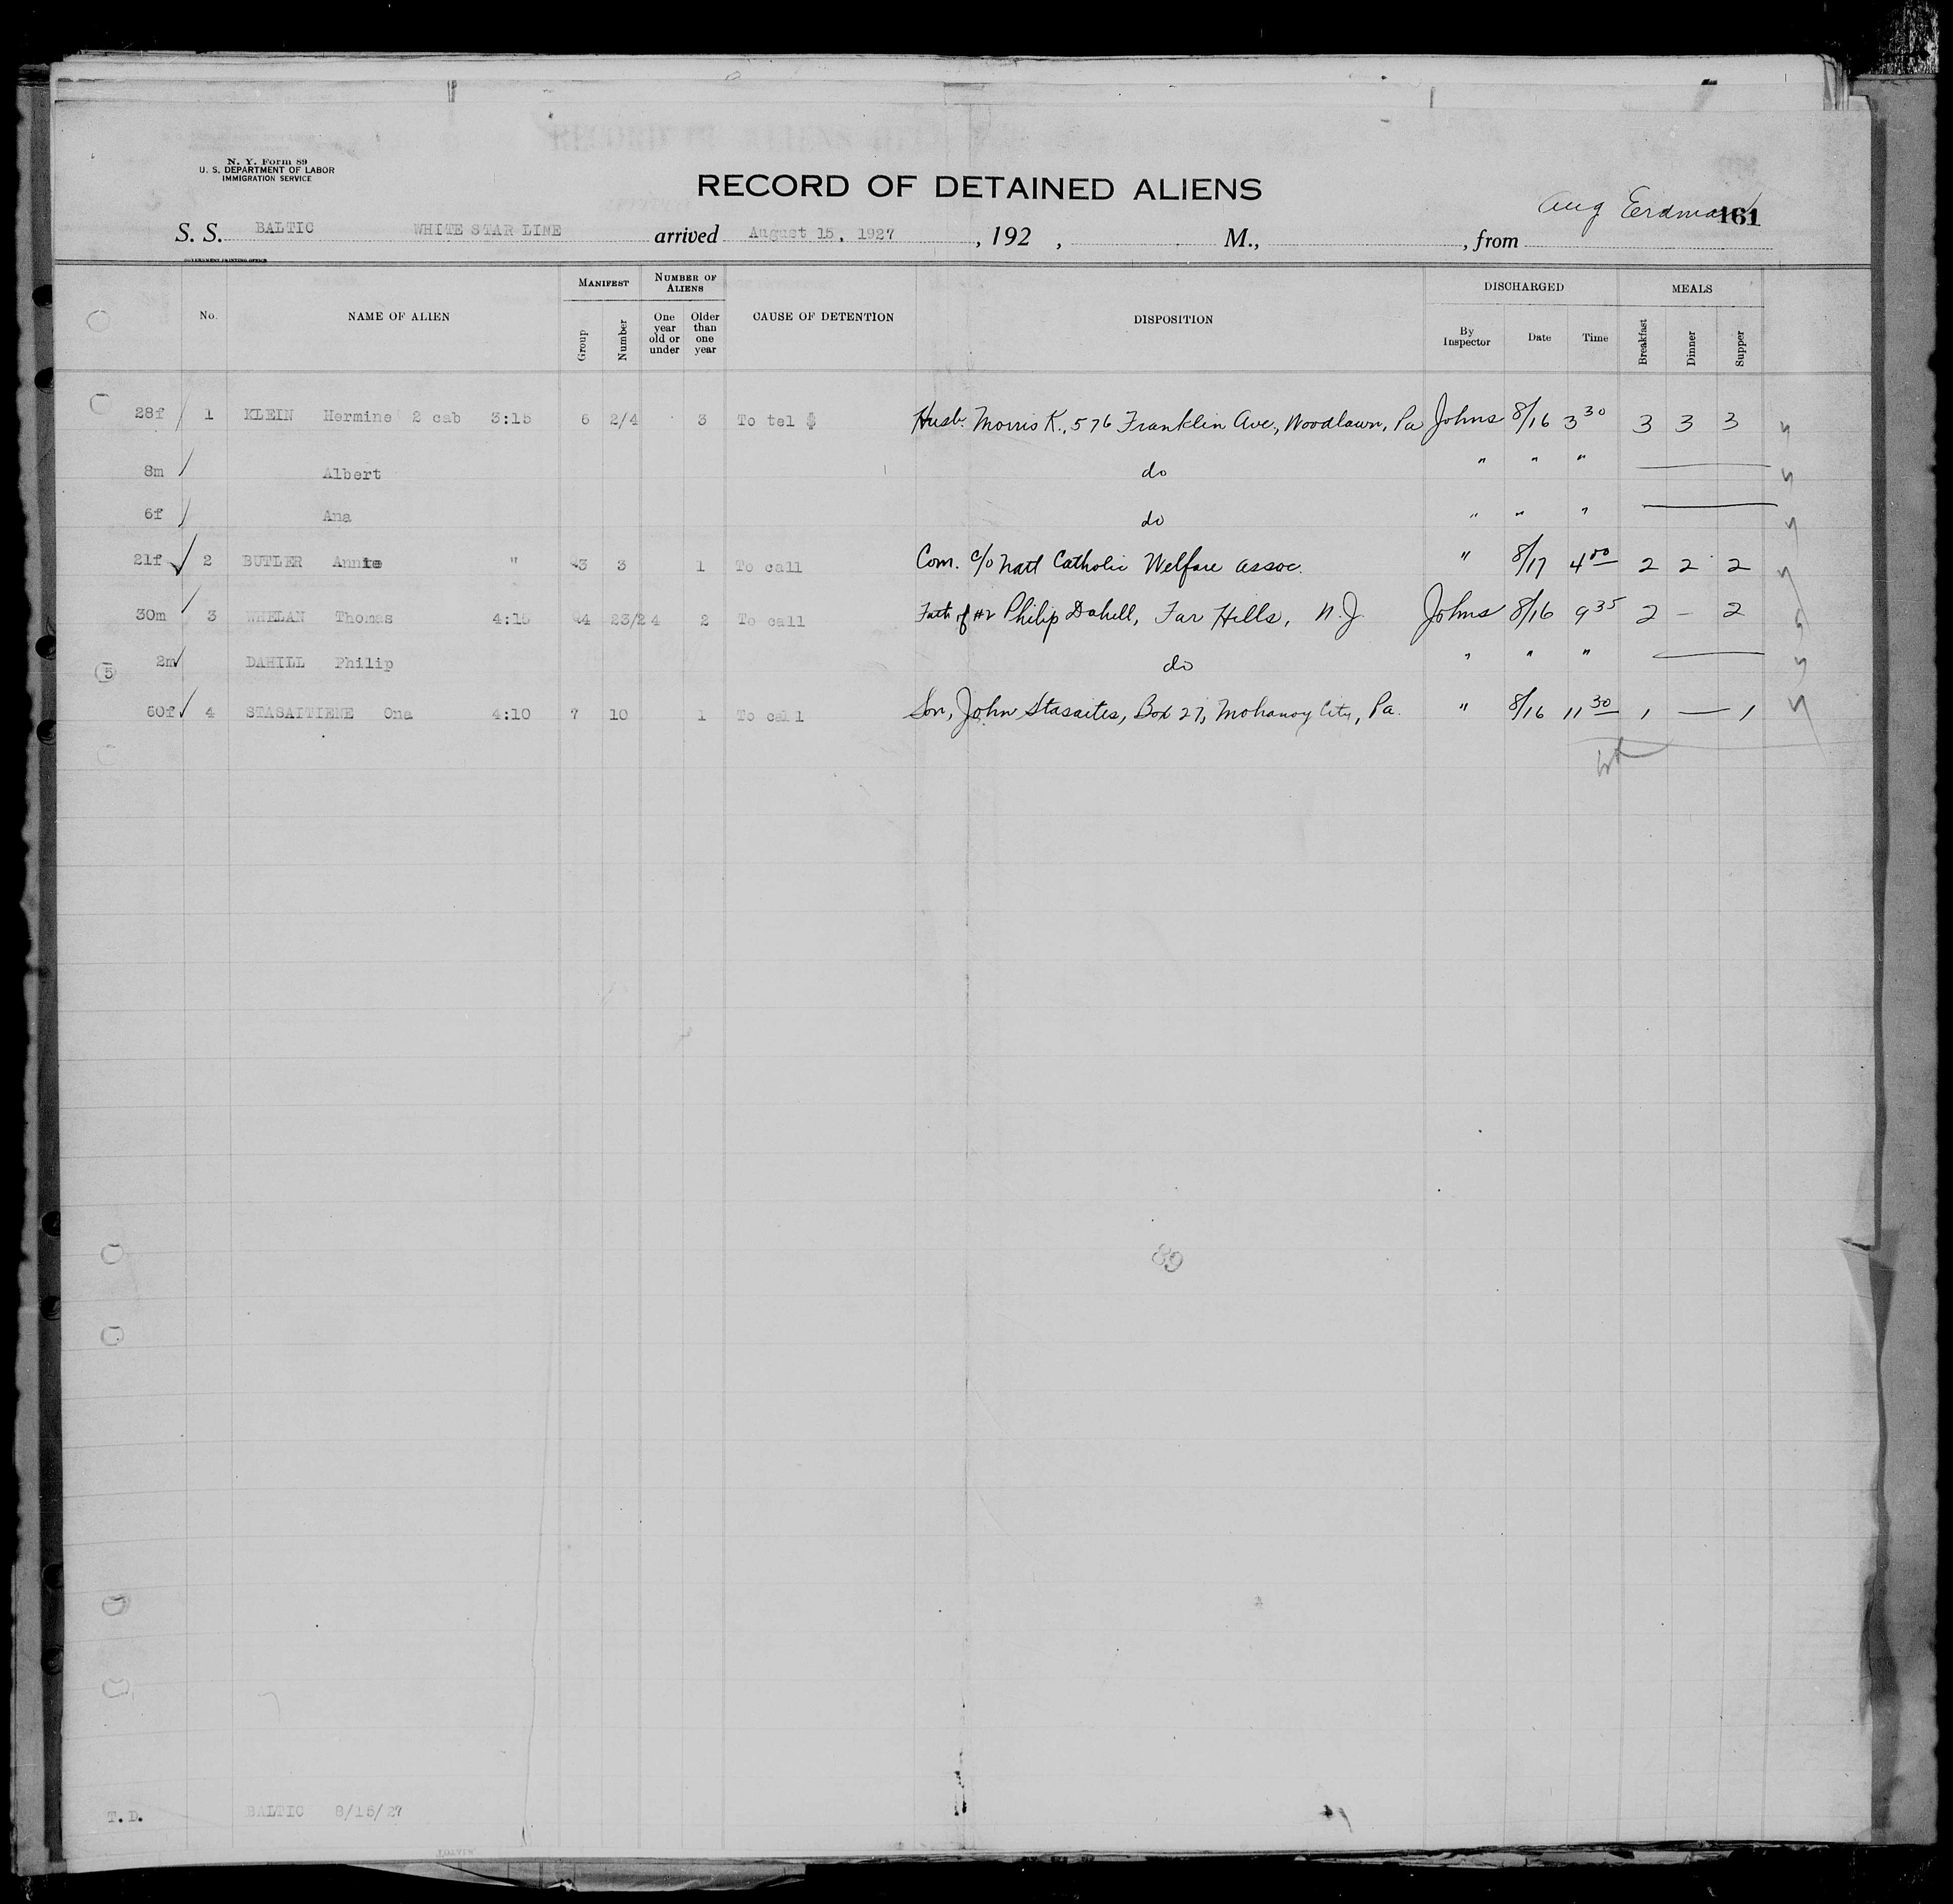 N. Y. Form 89
U. S. DEPARTMENT OF LABOR
IMMIGRATION SERVICE
RECORD OF DETAINED ALIENS
Aug Erdman 161
S. S. BALTIC WHITE STAR LINE arrived August 15, 1927 , 192 , M., , from
GOVERNMENT PRINTING OFFICE
No. NAME OF ALIEN MANIFEST Group Number NUMBER OF ALIENS One year old or under Older than one year CAUSE OF DETENTION DISPOSITION DISCHARGED By Inspector Date Time MEALS Breakfast Dinner Supper
28f 1 KLEIN Hermine 2 cab 3:15 6 2/4 3 To tel $ Husb. Morris K., 576 Franklin Ave, Woodlawn, Pa Johns 8/16 3 30 3 3 3
8m Albert do " " "
6f Ana do " " "
21f 2 BUTLER Annie " 3 3 1 To call Com. c/o Natl Catholic Welfare Assoc. " 8/17 4 00 2 2 2
30m 3 WHELAN Thomas 4:15 4 23/24 2 To call Fath of #2 Philip Dahill, Far Hills, N.J Johns 8/16 9 35 2 — 2
5 2m DAHILL Philip do " " "
60f 4 STASAITIENE Ona 4:10 7 10 1 To call Son, John Stasaites, Box 27, Mohanoy City, Pa. " 8/16 11 30 1 — 1
89
T. D. BALTIC 8/15/27